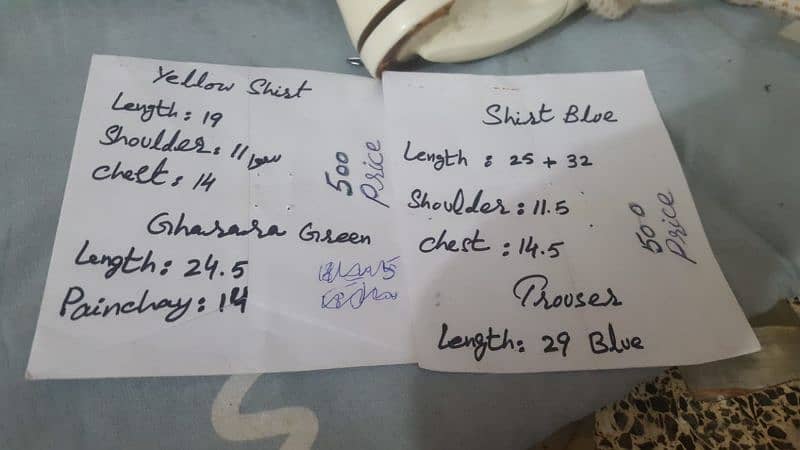 Yellow Shirt
Length: 19
Shoulder: 11
Chest: 14
Gharara Green
Length: 24.5
Painchay: 14
500
Price
Shirt Blue
Length : 25 + 32
Shoulder : 11.5
Chest : 14.5
Trouser
Length: 29 Blue
500
Price